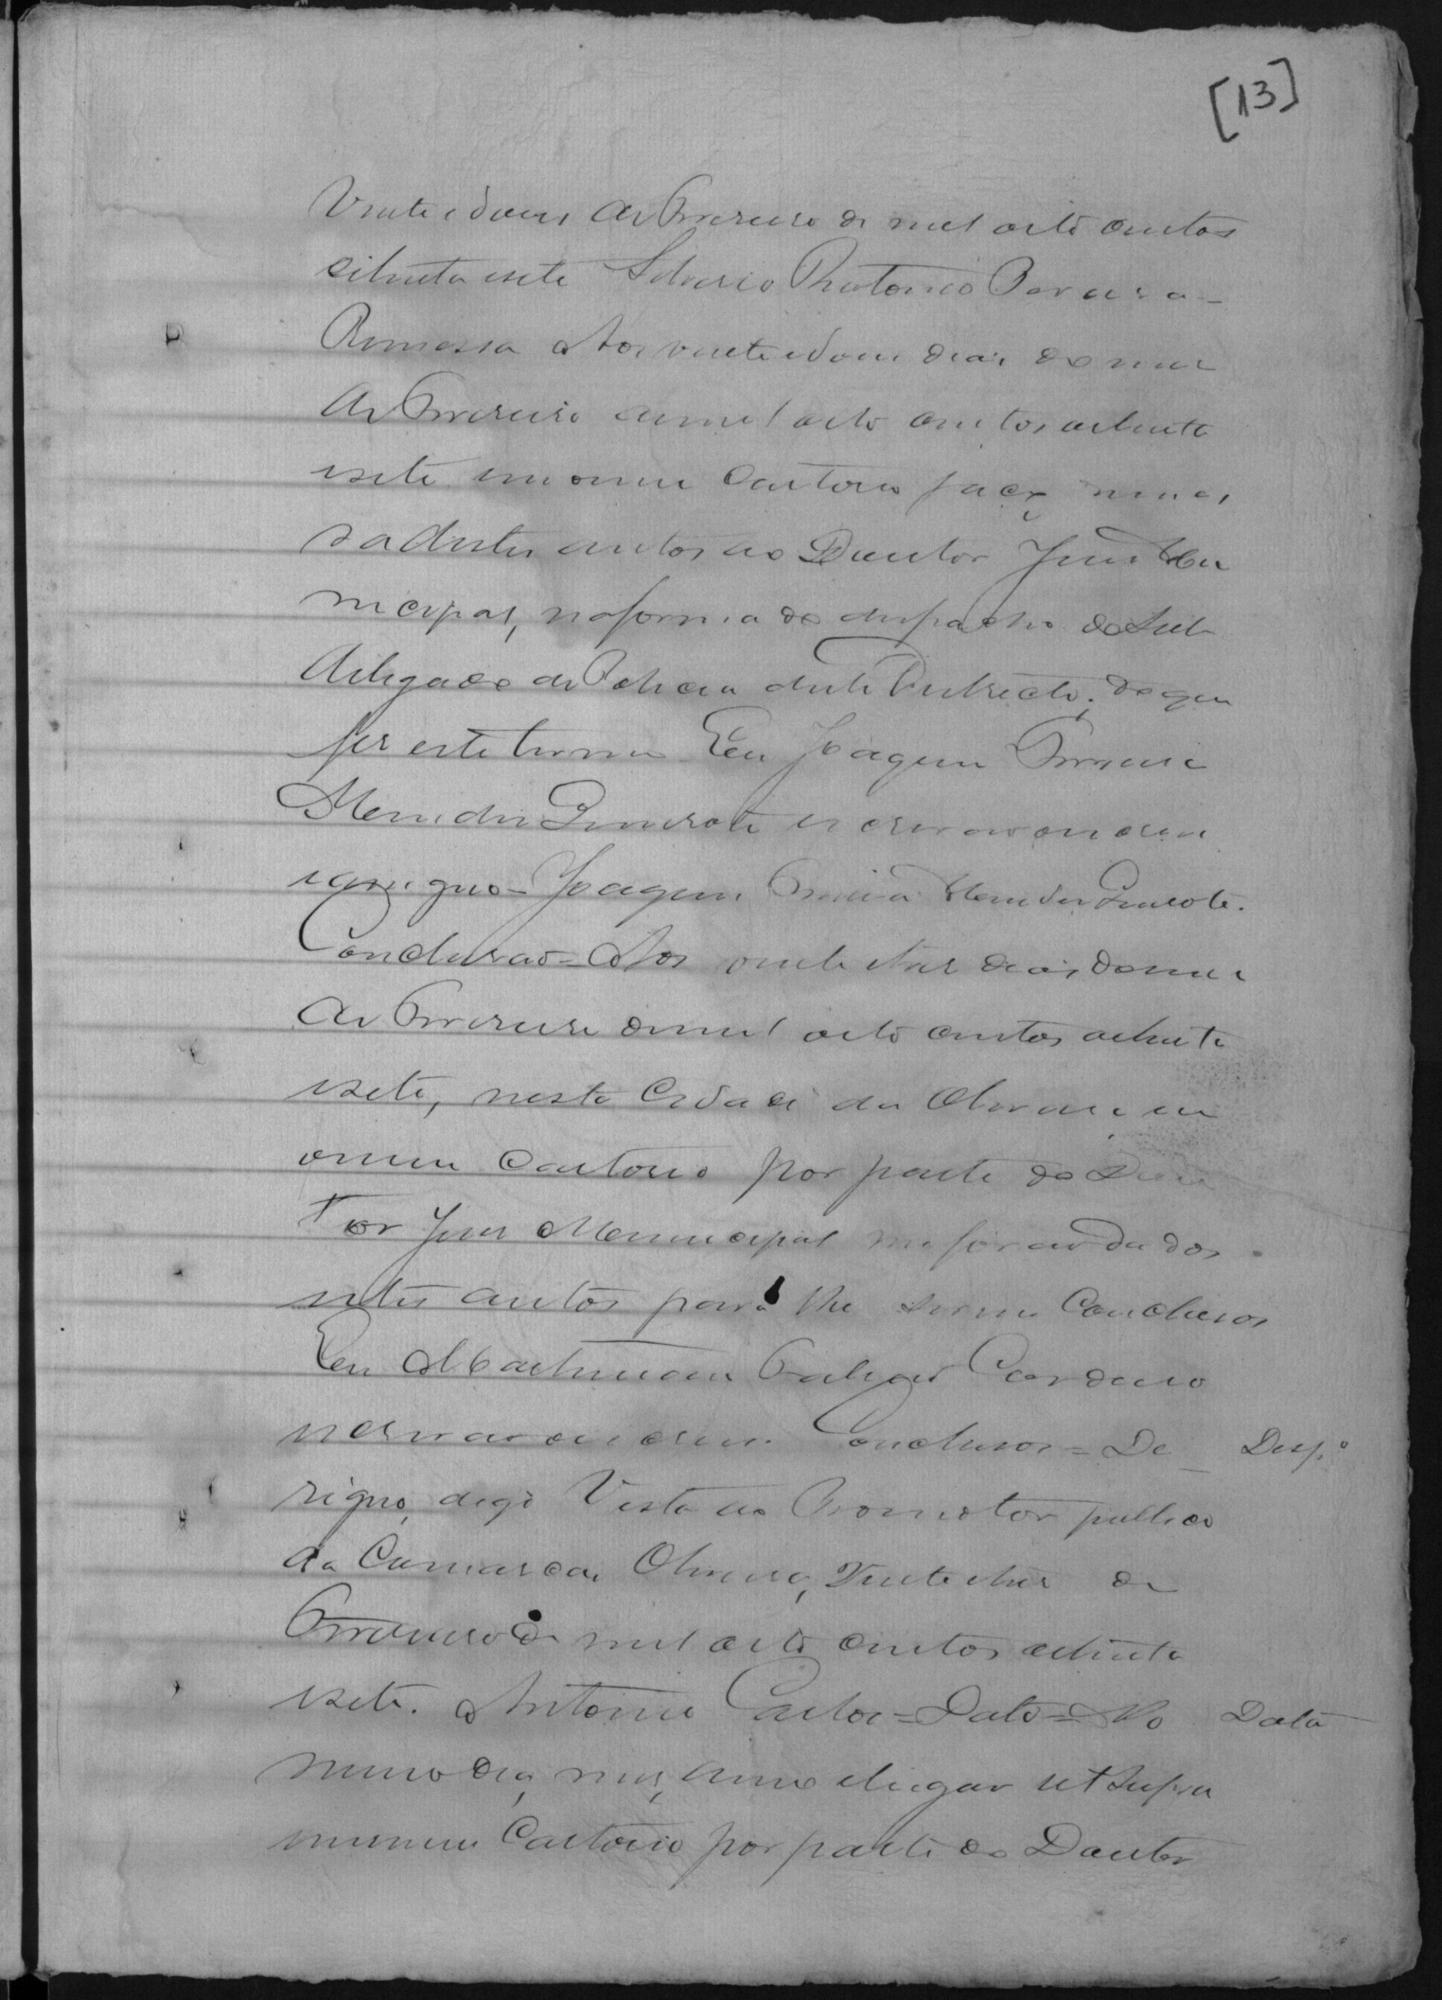 [13]
Vinte e dous de Fevereiro de mil oito centos
oitenta e sete Antonio Pereira -
Remessa Aos vinte e dous dias do mez
de Fevereiro de mil oito centos oitenta
e sete em meu Cartorio faço remes
sa destes autos ao Doutor Juiz Mu
nicipal, na forma do despacho do Sub
delegado de Policia deste Districto; do que
fiz este termo Eu Joaquim Pereira
Mendes escrivão o escrevi
e assigno - Joaquim Mendes
Conclusão - Aos vinte e tres dias do mez
de Fevereiro de mil oito centos oitenta
e sete, nesta Cidade de Oliveira em
o meu Cartorio por parte do Dou
tor Juiz Municipal me forão dados
estes autos para lhe serem Conclusos
Eu Cardoso
escrivão o escrevi. Conclusos = De Desp.º
signo, digo Vista ao Promotor publico
da Comarca. Oliveira, Vinte e tres de
Fevereiro de mil oito centos oitenta
e sete. Antonio Carlos = Data = No Data
mesmo dia, mez, anno e lugar ut supra
em meu Cartorio por parte do Doutor